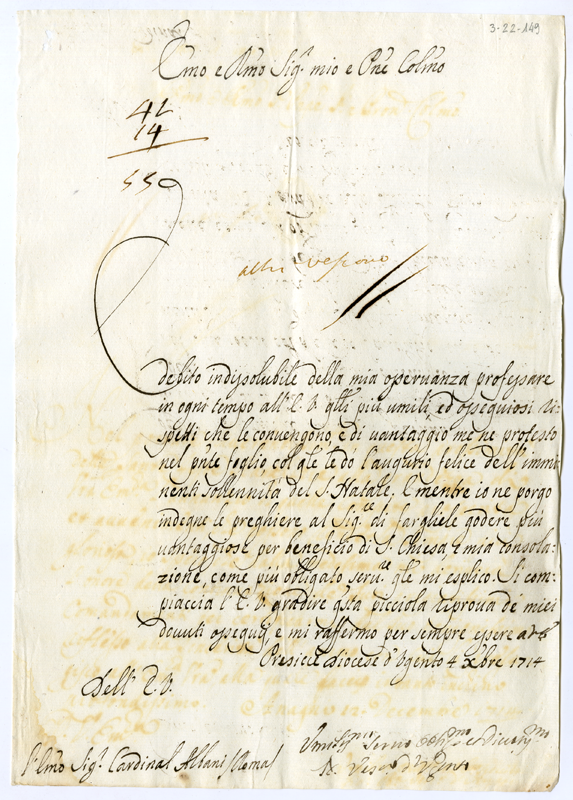 3-22-149
Emo e Rmo Sig.r mio e Pne Colmo
42
14
559
altri vescovo
È debito indissolubile della mia osservanza professare
in ogni tempo all'E. V. gl'li più umili, ed ossequiosi ri-
spetti che le convengono, e di vantaggio me ne protesto
nel pnte foglio, col qle le dò l'augurio felice dell'immi
nenti sollennità del S. Natale, E mentre io ne porgo
indegne le preghiere al Sig.re di fargliele godere più
vantaggiose per beneficio di S. Chiesa, e mia consola-
zione, come più obligato seru.re qle mi esplico. Si com-
piaccia l'E. V. gradire qsta picciola riprova de miei
dovuti ossequij, e mi raffermo per sempre essere
Presicce diocese d'Ugento 4 Xbre 1714
Dell'E. V.
Umiliss.mo Servo
N. Vesc.o d'Ugento
Emo Sig.r Cardinal Albani Roma